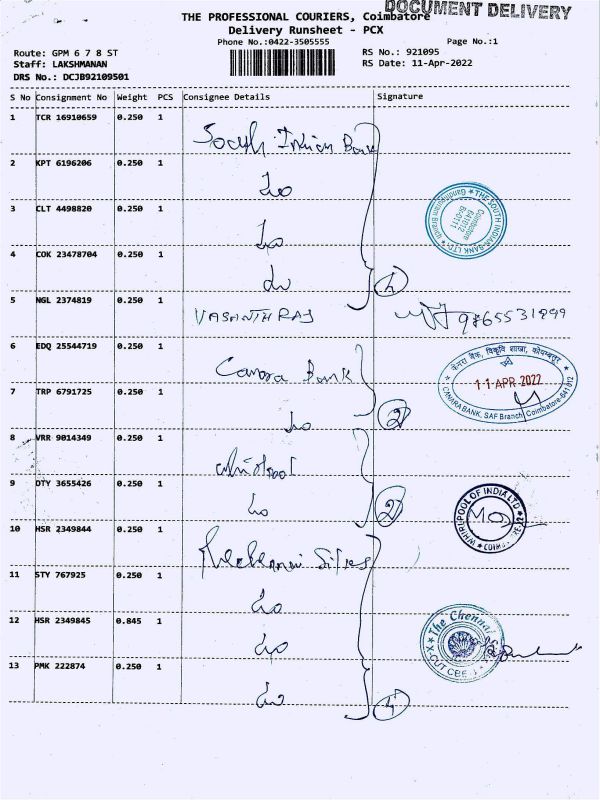 DOCUMENT DELIVERY
THE PROFESSIONAL COURIERS, Coimbatore
Delivery Runsheet - PCX
Phone No.:0422-3505555
Page No.:1
Route: GPM 6 7 8 ST
RS No.: 921095
Staff: LAKSHMANAN
RS Date: 11-Apr-2022
DRS No.: DCJB92109501
S No Consignment No Weight PCS Consignee Details Signature
1 TCR 16910659 0.250 1
South Indian Bank
2 KPT 6196206 0.250 1
do
3 CLT 4498820 0.250 1
do
4 COK 23478704 0.250 1
do 4
5 NGL 2374819 0.250 1
VASANTH RAJ 9865531899
6 EDQ 25544719 0.250 1
Canara Bank
7 TRP 6791725 0.250 1
do 2
8 VRR 9014349 0.250 1
whirlpool
9 DTY 3655426 0.250 1
do 2
10 HSR 2349844 0.250 1
11 STY 767925 0.250 1
do
12 HSR 2349845 0.845 1
do
13 PMK 222874 0.250 1
do 4
THE SOUTH INDIAN BANK LTD.
Gandhipuram Branch
Coimbatore
641012
केनरा बैंक,
शाखा, कोयम्बत्तूर
11 APR 2022
CANARA BANK, SAF Branch, Coimbatore-641 012
WHIRLPOOL OF INDIA LTD
The Chennai